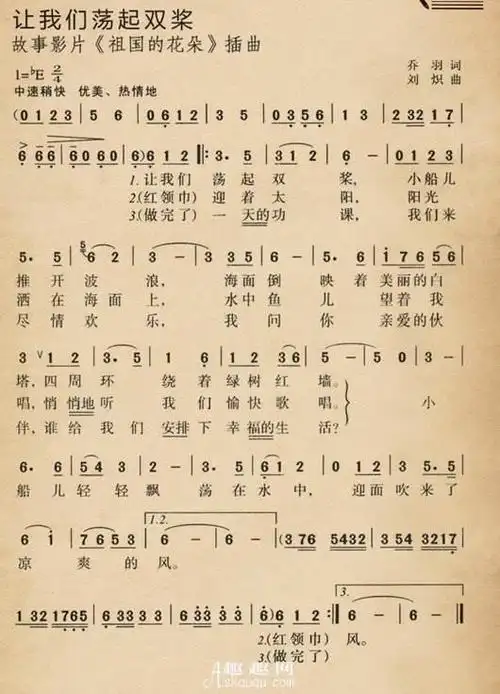 让我们荡起双桨
故事影片《祖国的花朵》插曲
1=♭E 2/4
乔羽 词
刘炽 曲
中速稍快 优美、热情地
(0 1 2 3 | 5 6 | 0 6 1 2 | 3 5 | 0 3 5 6 | 1 3 | 2 3 2 1 7 |
6 6 6 | 6 0 6 0 | 6) 6 1 2 |: 3. 5 | 3 1 2 | 6 - | 0 1 2 3 |
1.让我们 荡起双桨，小船儿
2.(红领巾) 迎着太阳，阳光
3.(做完了) 一天的功课，我们来
5. 5 | 6 2 | 3 - | 3. 5 | 6. 3 | 5. 6 | 1 7 6 5 6 |
推开波浪，海面倒映着美丽的白
洒在海面上，水中鱼儿望着我
尽情欢乐，我问你亲爱的伙
3 ∨ 1 2 | 3. 5 | 1 6 | 1 2 3 6 | 5 - | 5 - | 0 3 |
塔，四周环绕着绿树红墙。
唱，悄悄地听我们愉快歌唱。 小
伴，谁给我们安排下幸福的生活?
6. 6 | 5 4 | 1. 2 | 3. 5 | 6 1 2 | 0 1 2 | 3 5. 5 |
船儿轻轻飘荡在水中，迎面吹来了
6 1 | 7 6 5 3 | 6 - | 6 - | (3 7 6 5 4 3 2 | 3 5 4 3 2 1 7 |
1.2.
凉爽的风。
3.
1 3 2 1 7 6 5 | 6 3 3 3 | 6 3 3 3 3 | 6) 6 1 2 :| 6 - | 6 - ‖
2.(红领巾) 风。
3.(做完了)
趣趣网